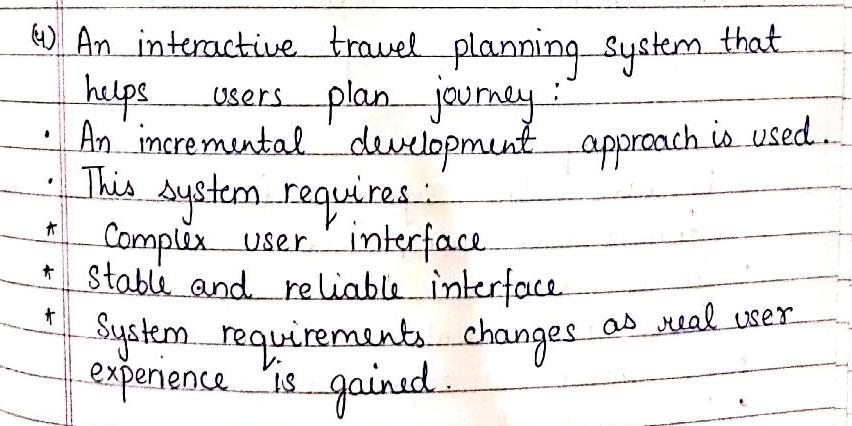 (4) An interactive travel planning system that
helps users plan journey :
• An incremental development approach is used.
• This system requires :
* Complex user interface
* Stable and reliable interface
* System requirements changes as real user
experience is gained.